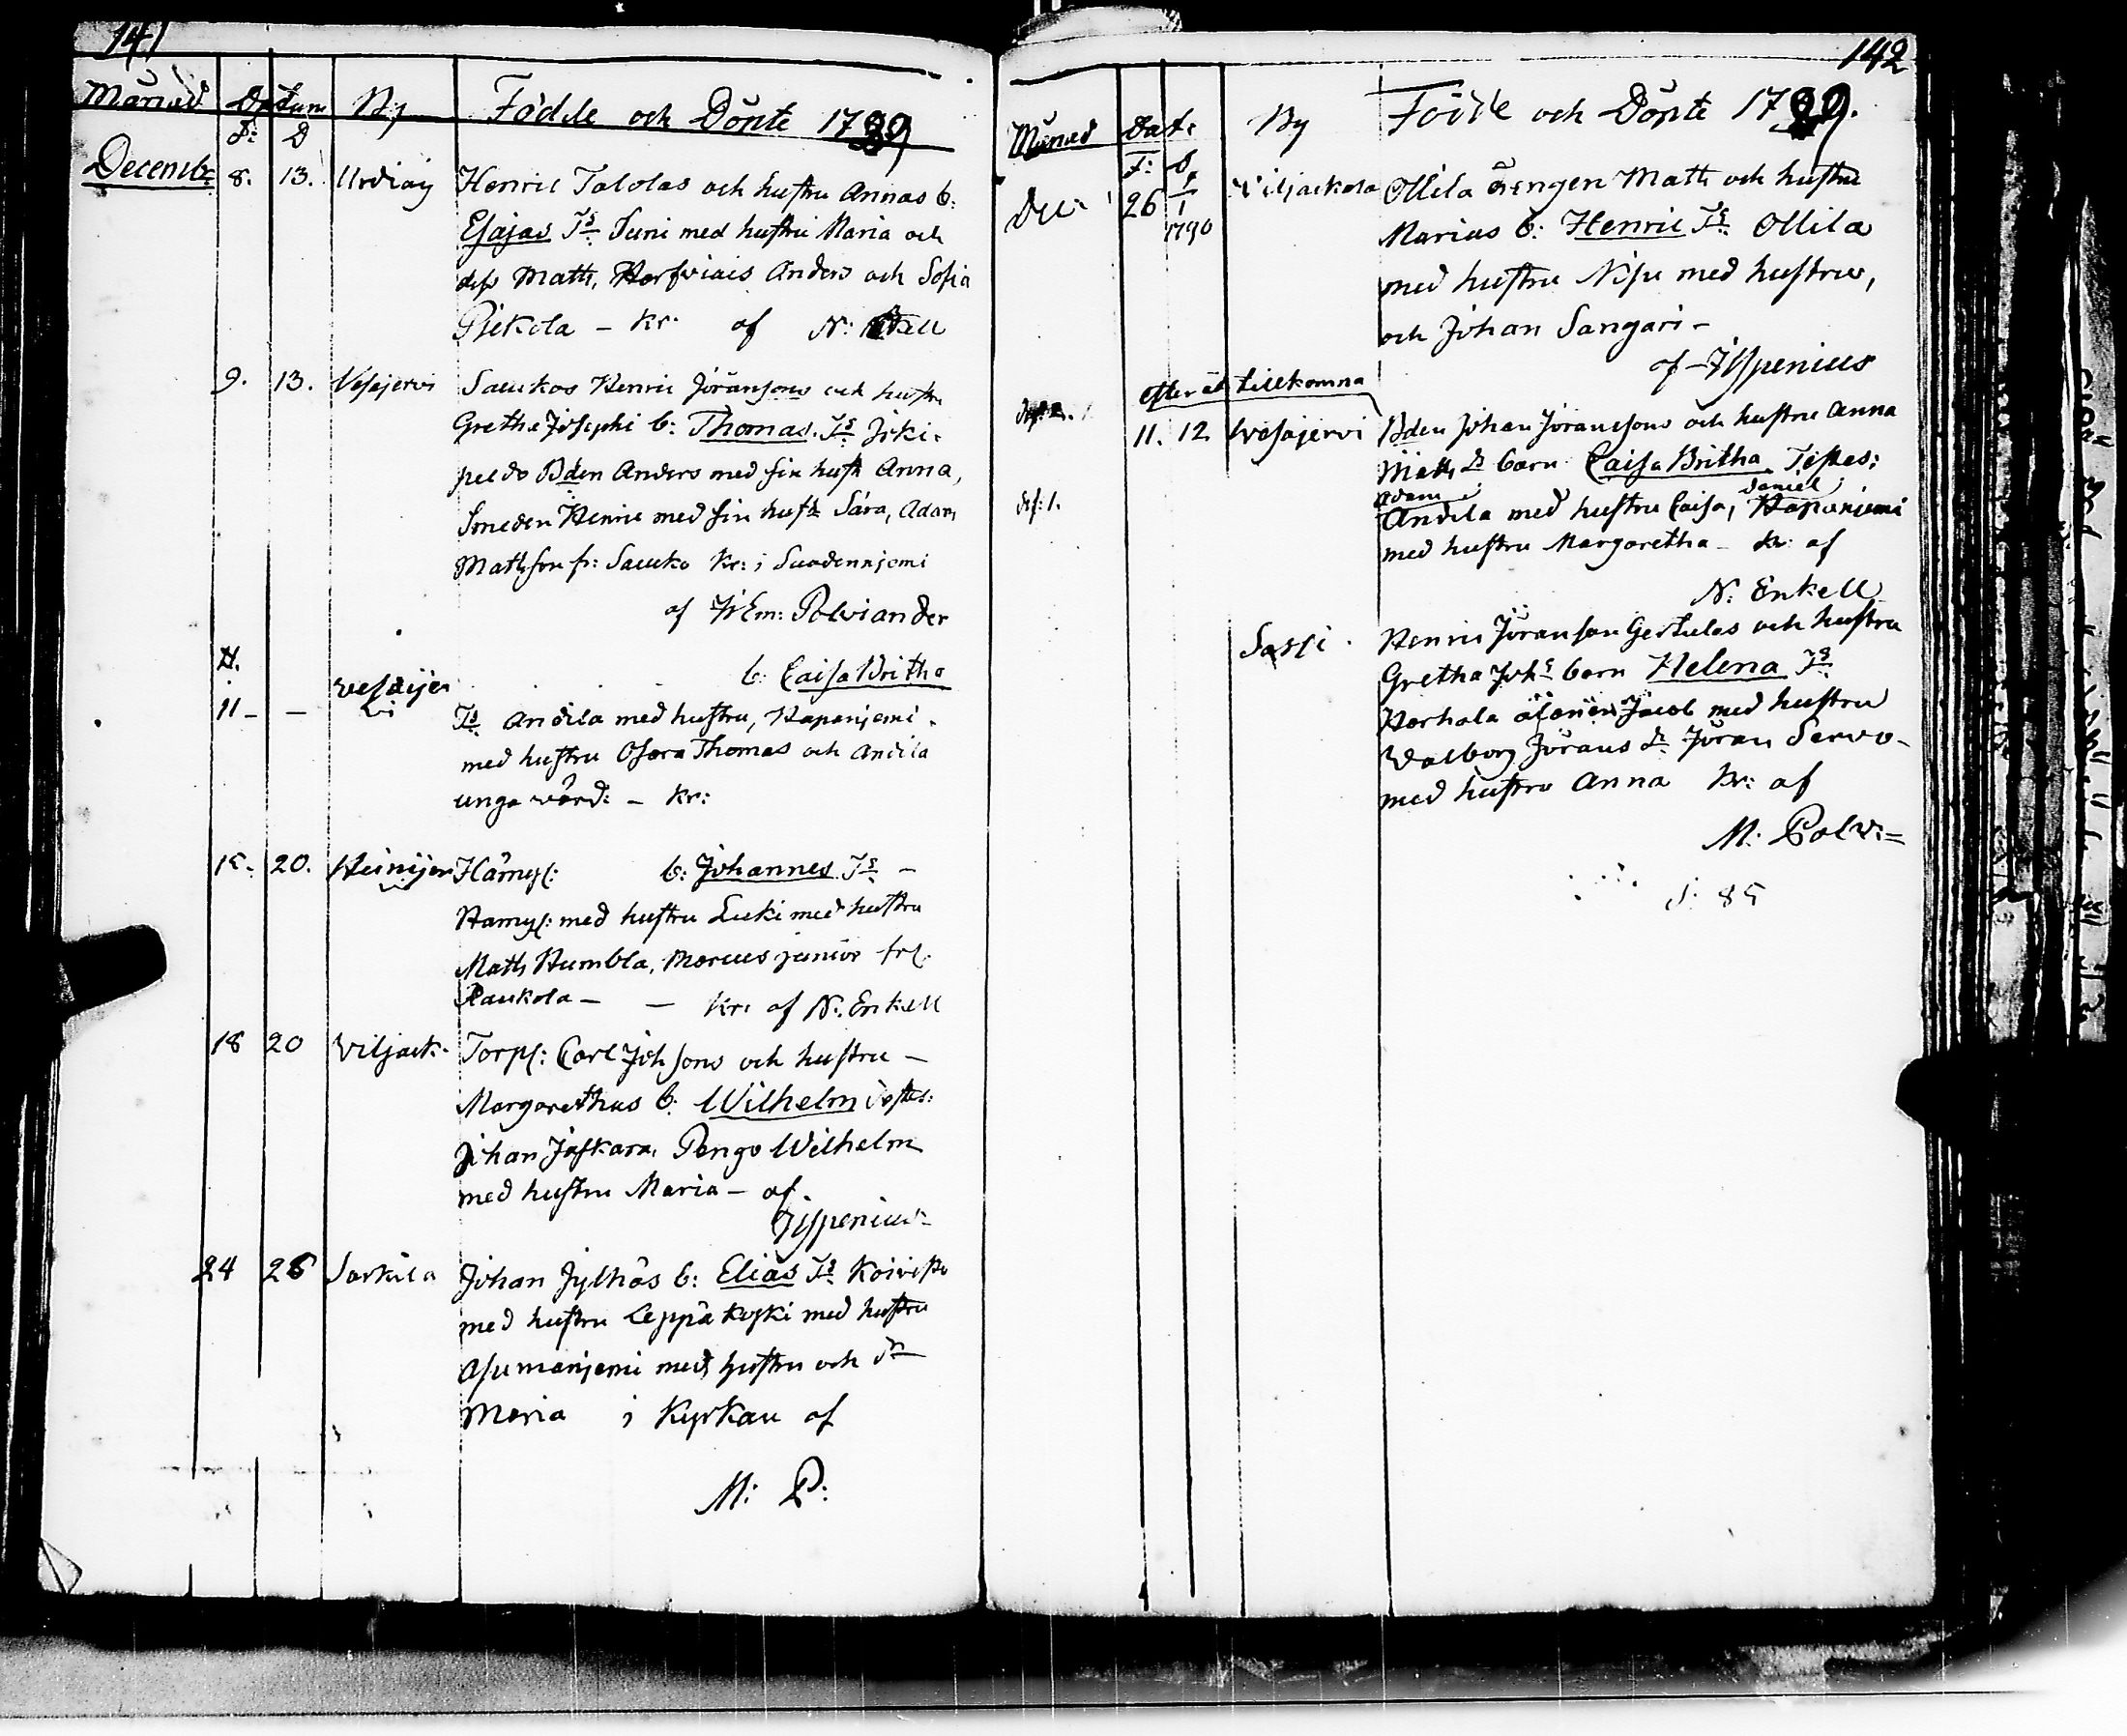 141
Månad Datum By Födde och Döpte 1789
F: D
Decembr 8. 13. Urdiaij Henric Talolas och hustru Annas b:
Esajas Ts Suni med hustru Maria och
dess Matts, Anders och Sofia
Piekola - kr: af N: Enkell
9. 13. Vesajervi Saukos Henric Jöransons och hustru
Gretha Josephi b: Thomas. Ts Jiki-
Bden Anders med sin hust: Anna,
Smeden Henric med sin hust: Sara, Adam
Mathson fr: Sauko kr: i Suodennjemi
af Polviander
b: Caisa Britha
11 - - Vesaijer
vi
Ts Andila med hustru, Hapanjemi
med hustru Osara Thomas och Andila
unga värd: - kr:
15. 20. Heinijer Hämys: b: Johannes Ts -
Hamys: med hustru Luki med hustru
Matts Humbla, Marcus junior frs.
Raukola - - kr: af N. Enkell
18 20 Viljack. Torps: Carl Joh sons och hustru -
Margarethas b: Wilhelm Testes:
Johan Jaskara, Pengo Wilhelm
med hustru Maria - af.
Ispenius
24 26 Sarkila Johan Jylhäs b: Elias Ts Koivisto
med hustru Leppäkoski med hustru
Asumanjemi med hustru och dr
Maria i Kyrkan af
M: P:
142
Månad Dat: By Födde och Döpte 1789.
F: D
Dec: 26 1/1 1790 Viljackala Ollila Drengen Matts och hustru
Marias b: Henric Ts Ollila
med hustru Nisu med hustru,
och Johan Sangari -
af Ispenius
efteråt tillkomna
11. 12 Vesajervi Bden Johan Jöranssons och hustru Anna
Matts dr barn Caisa Britha Testes:
Adam Daniel
Andila med hustru Caisa, Hapanjemi
med hustru Margaretha - kr: af
N: Enkell
Sassi. Henric Jöranson Gertulas och hustru
Gretha Johs barn Helena Ts
Karhala Jacob med hustru
Valborg Jörans dr Jöran Servo-
med hustru Anna kr: af
M: Polvi=
S: 85